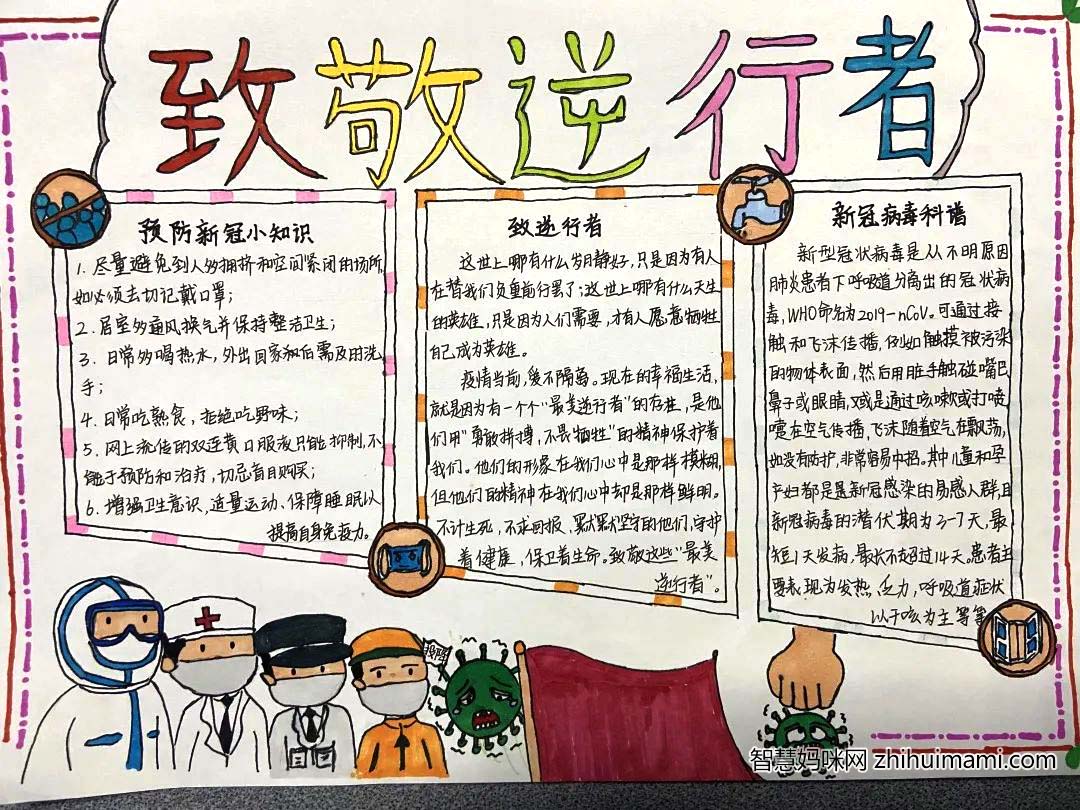 致敬逆行者
预防新冠小知识
1. 尽量避免到人多拥挤和空间紧闭的场所
如必须去切记戴口罩；
2. 居室多通风换气并保持整洁卫生；
3. 日常多喝热水，外出回家和后需及时洗
手；
4. 日常吃熟食，拒绝吃野味；
5. 网上流传的双连黄口服液只能抑制，不
能于预防和治疗，切忌盲目购买；
6. 增强卫生意识，适量运动、保障睡眠以
提高自身免疫力。
致逆行者
这世上哪有什么岁月静好，只是因为有人
在替我们负重前行罢了；这世上哪有什么天生
的英雄，只是因为人们需要，才有人愿意牺牲
自己成为英雄。
疫情当前，爱不隔离。现在的幸福生活，
就是因为有一个个“最美逆行者”的存在，是他
们用“勇敢拼搏，不畏牺牲”的精神保护着
我们。他们的形象在我们心中是那样模糊，
但他们的精神在我们心中却是那样鲜明。
不计生死，不求回报，默默坚守的他们，守护
着健康，保卫着生命。致敬这些“最美
逆行者”。
新冠病毒科谱
新型冠状病毒是从不明原因
肺炎患者下呼吸道分离出的冠状病
毒，WHO命名为2019-nCoV。可通过接
触和飞沫传播，例如触摸被污染
的物体表面，然后用脏手触碰嘴巴
鼻子或眼睛，或是通过咳嗽或打喷
嚏在空气传播，飞沫随着空气在飘荡，
如没有防护，非常容易中招。其中儿童和孕
产妇都是是新冠感染的易感人群，且
新冠病毒的潜伏期为3-7天，最
短1天发病，最长不超过14天。患者主
要表现为发热，乏力，呼吸道症状
以干咳为主等等
智慧妈咪网 zhihuimami.com